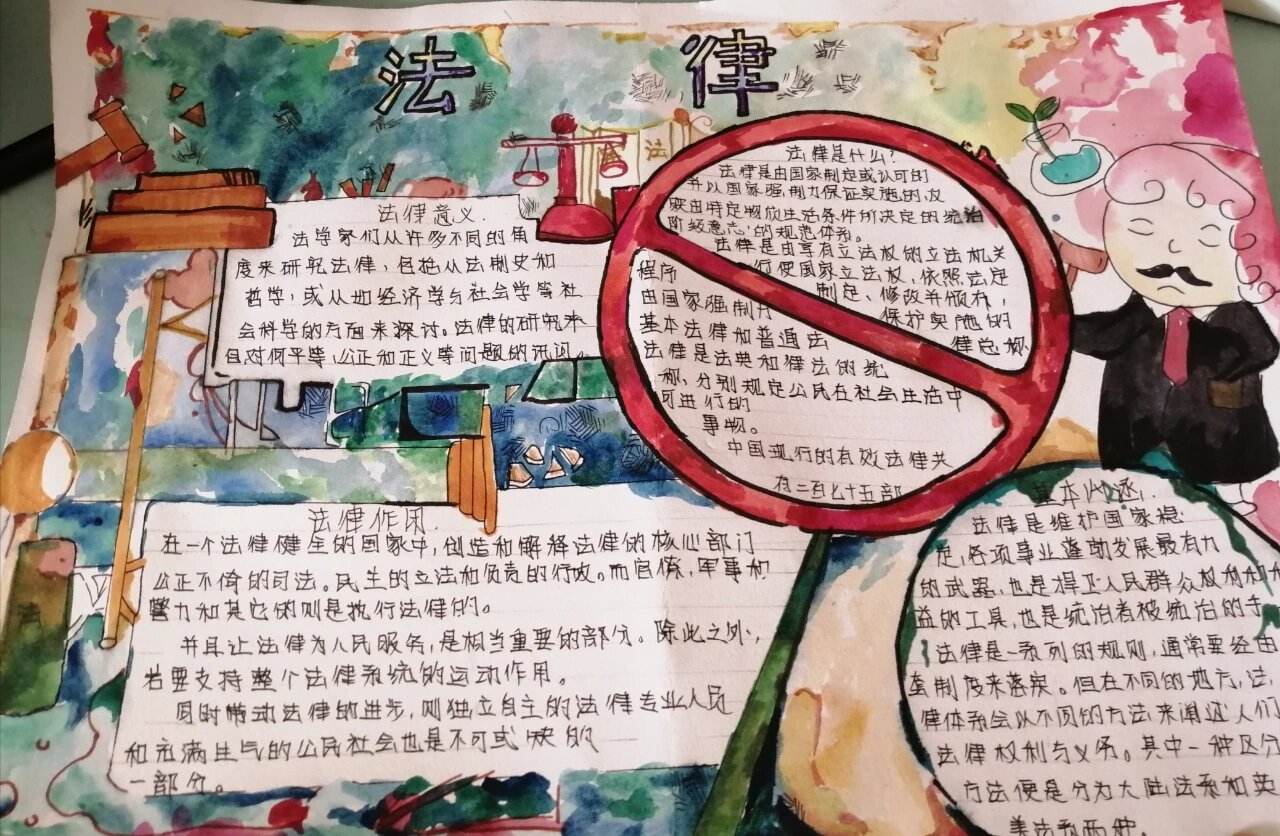 法律
法
法律意义.
法学家们从许多不同的角
度来研究法律,包括从法制史和
哲学,或从如经济学与社会学等社
会科学的方面来探讨。法律的研究来
自对何平等,公正和正义等问题的讯问。
法律是什么?
法律是由国家制定或认可的
并以国家强制力保证实施的,反
映由特定物质生活条件所决定的统治
阶级意志的规范体系。
法律是由享有立法权的立法机关
行使国家立法权,依照法定
程序
制定、修改并颁布,
由国家强制力
保护实施的
基本法律和普通法
律总称
法律是法典和律法的统
称,分别规定公民在社会生活中
可进行的
事物。
中国现行的有效法律共
有二百七十五部
法律作用.
在一个法律健全的国家中,创造和解释法律的核心部门
公正不倚的司法。民生的立法和负责的行政。而官僚,军事和
警力和其它的则是执行法律的。
并且让法律为人民服务,是相当重要的部分。除此之外,
若要支持整个法律系统的运动作用。
同时带动法律的进步,则独立自主的法律专业人员
和充满生气的公民社会也是不可或缺的
一部分。
法
基本内涵.
法律是维护国家稳
定,各项事业蓬勃发展最有力
的武器,也是捍卫人民群众权利和
益的工具,也是统治者被统治的手
法律是一系列的规则,通常要经由
套制度来落实。但在不同的地方,法
律体系会以不同的方法来阐述人们
法律权利与义务。其中一种区分
方法便是分为大陆法系和英
美法系两种。